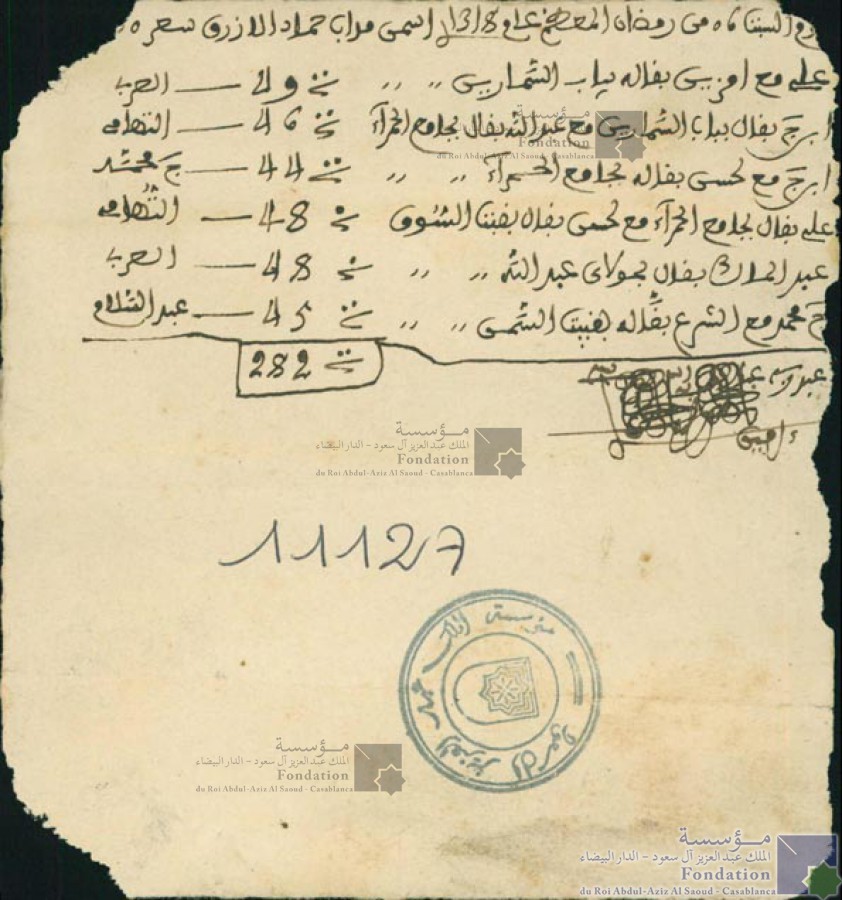 السبت 26 من رمضان المعظم عام 1318 اسمى مداب حماد الازرق سعره
علي مع امزين بفاله بباب الشمارين " " 49 — العرب
ابرج بفال بباب الشمارين مع عبد الله بفال بجامع الحمرآ 46 — التهامي
ابرج مع لحسن بفاله بجامع الحمرآ " " 44 — ج محمد
علي بفال بجامع الحمرآ مع لحسن بفال بفبت السوق 48 — التهامي
عبد المالك بفال بمولاي عبد الله " " 48 — العرب
ج محمد مع الشرع بفاله بفبيت الشمس " " 45 — عبد السلام
282
11127
مؤسسة الملك عبد العزيز آل سعود
مؤسسة
الملك عبد العزيز آل سعود - الدار البيضاء
Fondation
du Roi Abdul-Aziz Al Saoud - Casablanca
مؤسسة
الملك عبد العزيز آل سعود - الدار البيضاء
Fondation
du Roi Abdul-Aziz Al Saoud - Casablanca
مؤسسة
الملك عبد العزيز آل سعود - الدار البيضاء
Fondation
du Roi Abdul-Aziz Al Saoud - Casablanca
مؤسسة
الملك عبد العزيز آل سعود - الدار البيضاء
Fondation
du Roi Abdul-Aziz Al Saoud - Casablanca